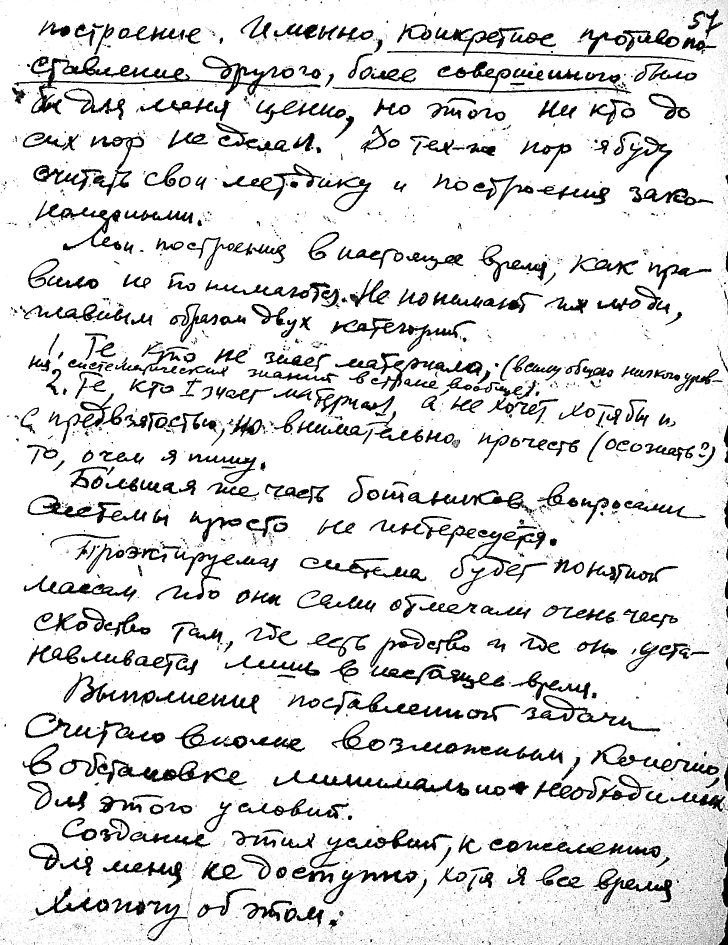 57
построение. Именно, конкретное противопо-
ставление другого, более совершенного было
бы для меня ценно, но этого ни кто до
сих пор не сделал. До тех-же пор я буду
считать свои методику и построения зако-
номерными.
Мои построения в настоящее время, как пра-
вило не понимаются. Не понимают их люди,
главным образом двух категорий.
1. Те кто не знает материала, (ввиду общего низкого уров-
ня систематических знаний в стране, вообще).
2. Те, кто знает материал, а не хочет хотя бы и
с предвзятостью, но внимательно прочесть (осознать?)
то, о чем я пишу.
Бо́льшая же часть ботаников вопросами
системы просто не интересуется.
Проэктируемая система будет понятной
массам ибо они сами отмечали очень часто
сходство там, где есть родство и где оно уста-
навливается лишь в настоящее время.
Выполнение поставленной задачи
считаю вполне возможным, конечно,
в обстановке минимально необходимых
для этого условий.
Создание этих условий, к сожалению,
для меня не доступно, хотя я все время
хлопочу об этом.